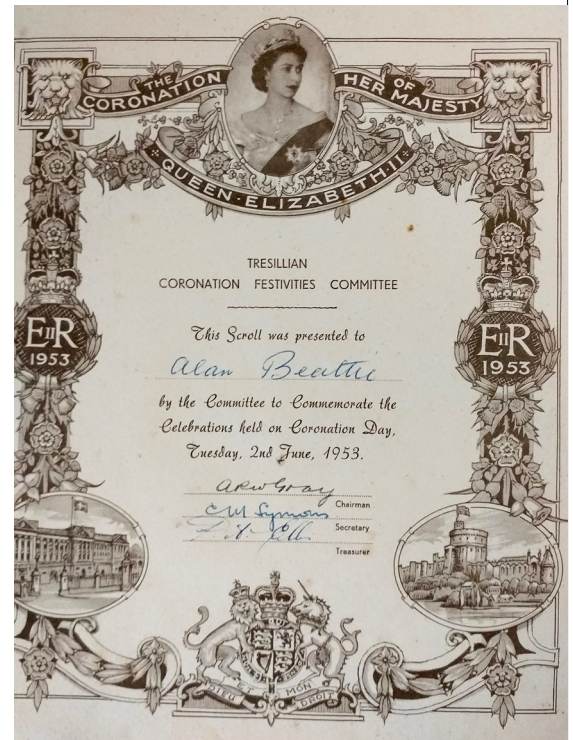 THE CORONATION OF HER MAJESTY
QUEEN · ELIZABETH · II
TRESILLIAN
CORONATION FESTIVITIES COMMITTEE
This Scroll was presented to
Alan Beattie
by the Committee to Commemorate the
Celebrations held on Coronation Day,
Tuesday, 2nd June, 1953.
Gray
Chairman
C M Symons
Secretary
Treasurer
EIIR
1953
EIIR
1953
DIEU ET MON DROIT